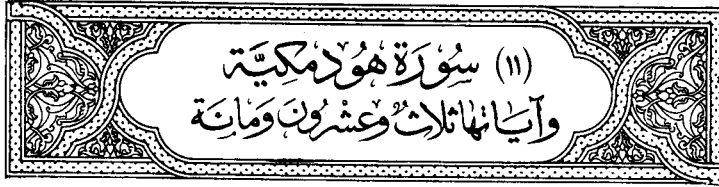 (١١) سُورَة هُود مَكيَّة
وآيَاتها ثلاثٌ وعشرُونَ ومَائة